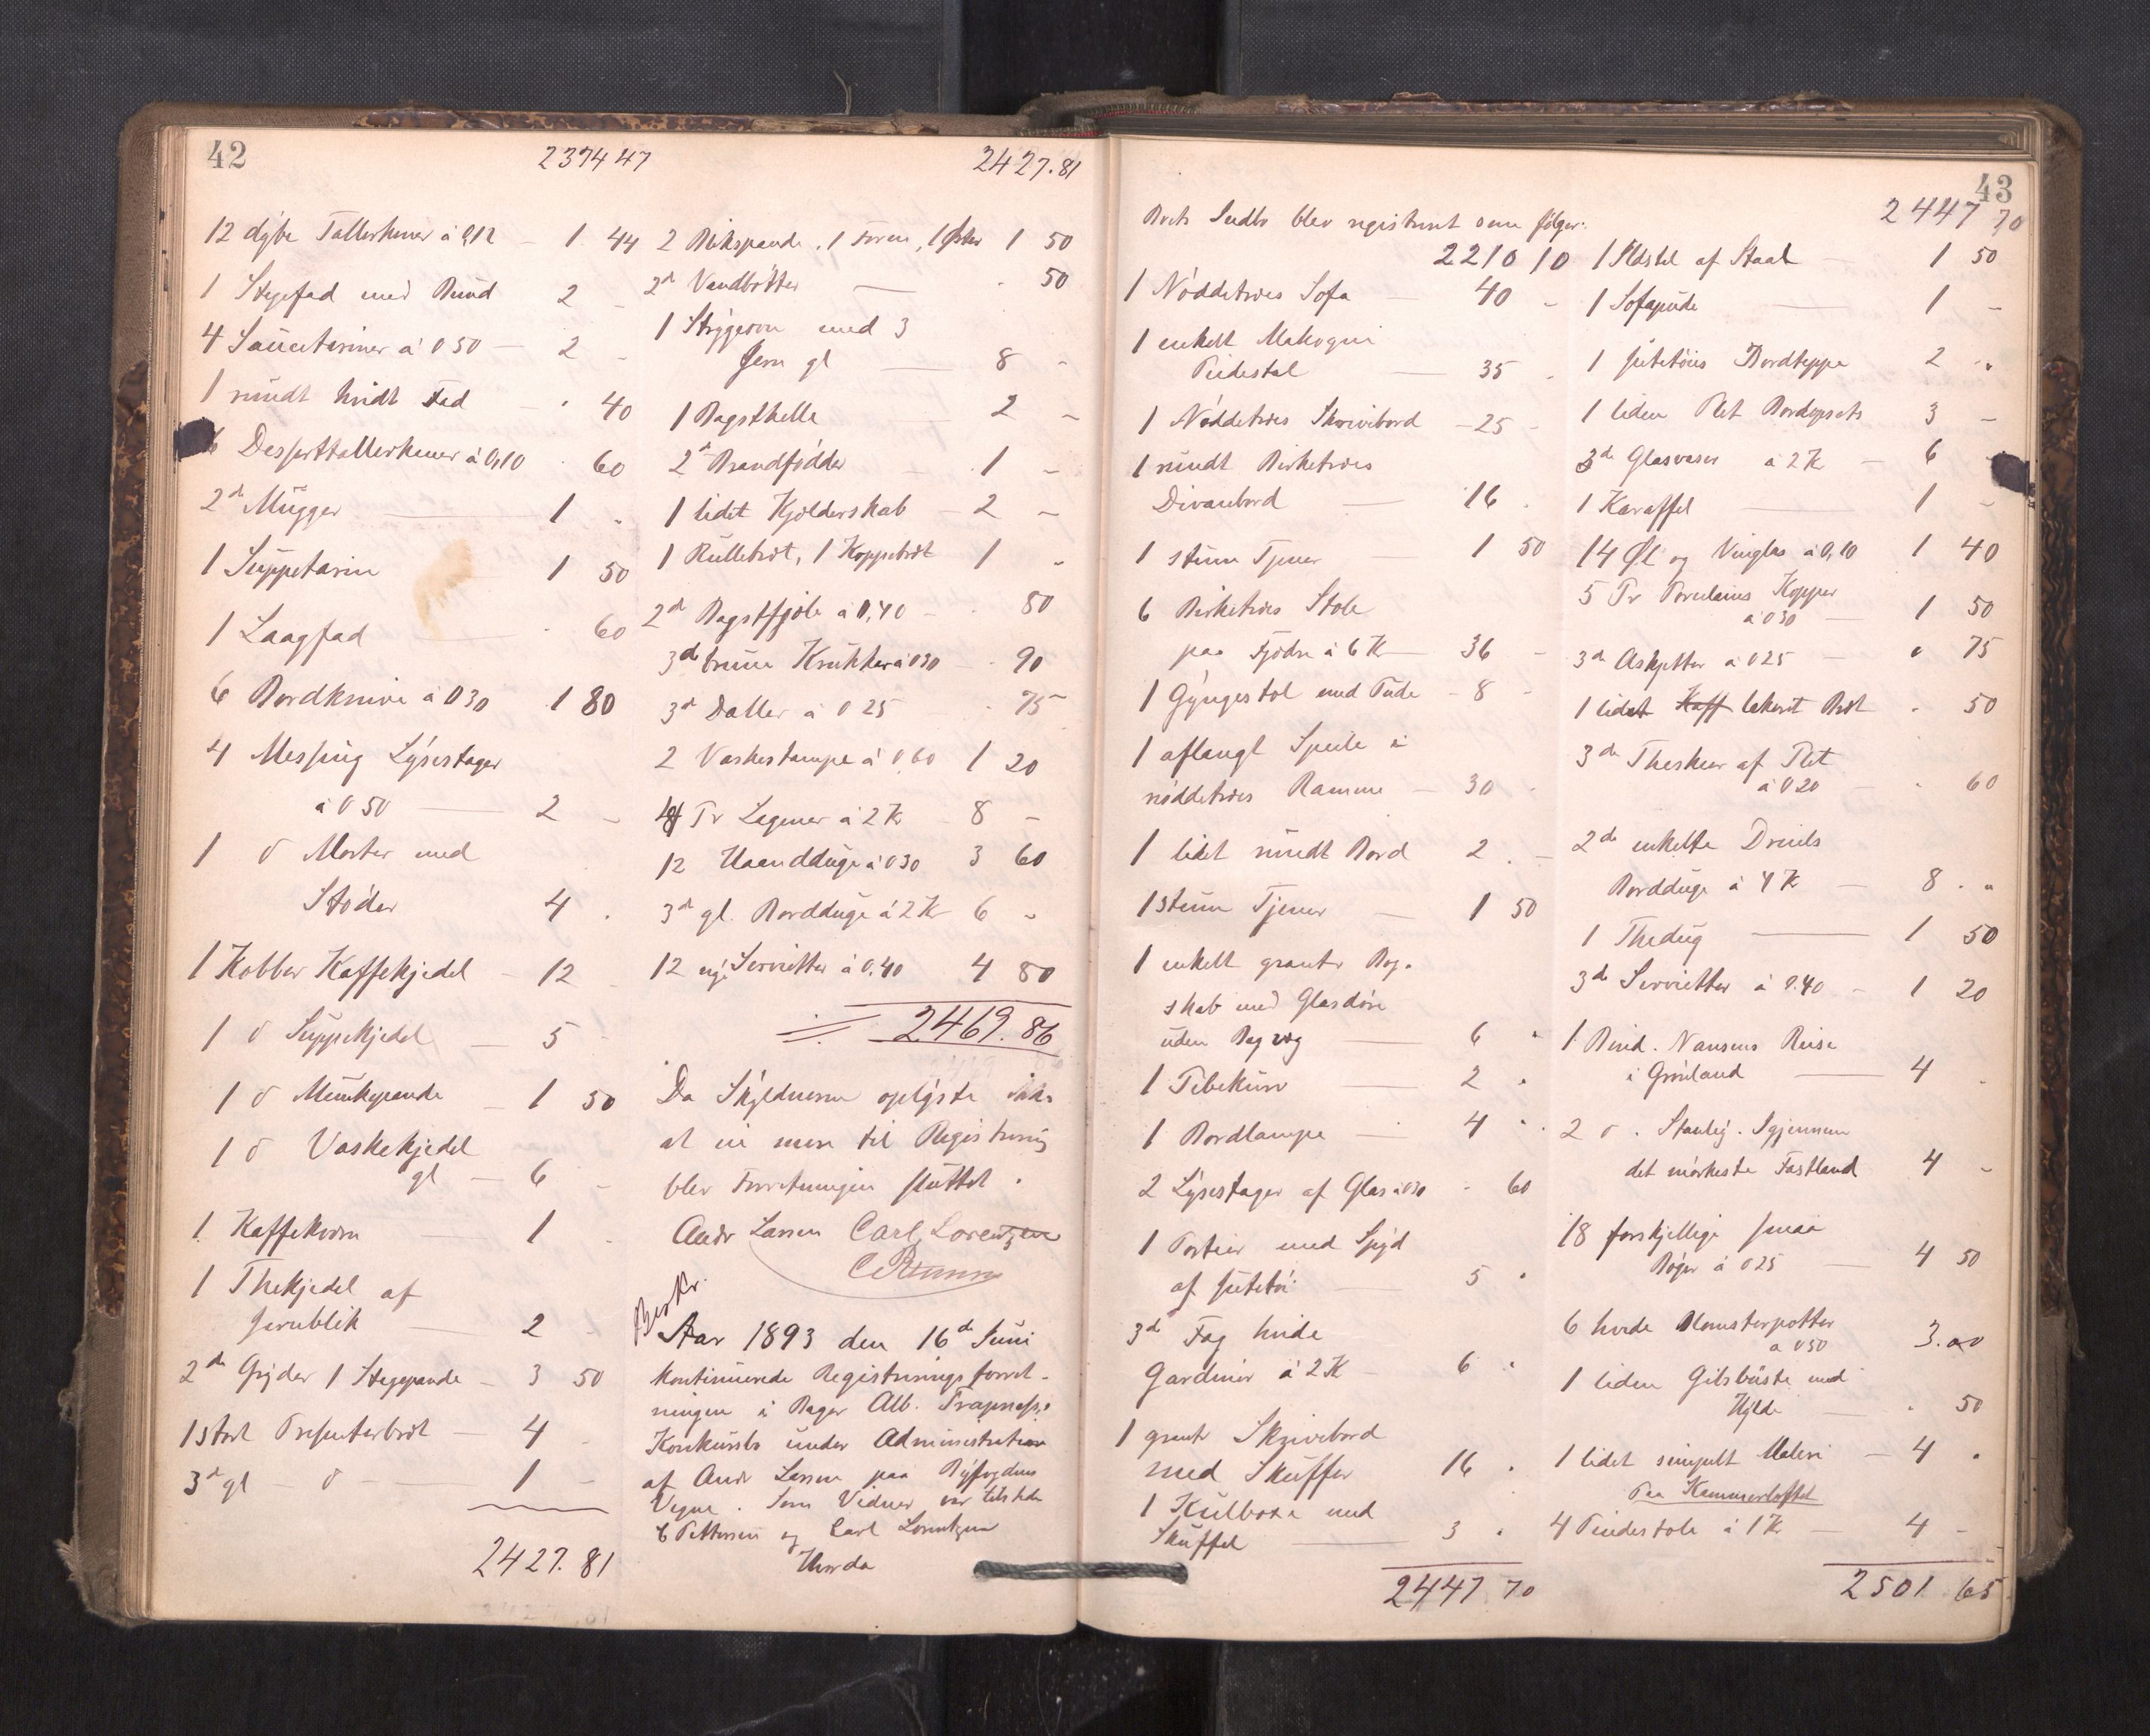 42
2374 47
12 dybe Tallerkener à 0,12 - 1 44
1 Stegefad med Rund 2 -
4 Saucetериner à 0 50 - 2 -
1 rundt hvidt Fad - " 40
6 Desserttallerkener à 0,10 60
2de Mugger 1 -
1 Suppeterin 1 50
1 Laagfad 60
6 Bordknive à 0 30 1 80
4 Messing Lysestager
à 0 50 - 2 -
1 do Morter med
Støder 4 -
1 Kobber Kaffekjedel - 12 -
1 do Suppekjedel - 5 -
1 do Munkepande - 1 50
1 do Vaskekjedel
gl - 6 -
1 Kaffekvern - 1 -
1 Thekjedel af
Jernblik 2 -
2de Gryder 1 Stegepande - 3 50
1 stort Presenterbret - 4 -
3de gl - do - 1 -
2427. 81
2427.81
2 Blikspande, 1 1 50
2de Vandbøtter - 50
1 Strygeovn med 3
Jern gl 8 -
1 Bagsthelle 2 -
2de Brandfødder - 1 -
1 lidet Kjølderskab - 2 -
1 Rullebret, 1 Koppebret 1 -
2de Bagstfjøle à 0,40 - 80
3de brune Krukker à 0 30 - 90
3de Daller à 0 25 - 75
2 Vaskestampe à 0,60 1 20
4 Pr Lagener à 2 Kr - 8 -
12 Haandduge à 0 30 3 60
3de gl. Bordduge à 2 Kr 6 -
12 nye Servietter à 0,40 4 80
2469. 86
Da Skyldneren oplyste Intet
at eie mere til Registrering
blev Forretningen sluttet.
Andr Larsen Carl Lorentzen
Aar 1893 den 16de Juni
kontinuerede Registreringsforret-
ningen i Bager Alb.
Konkursbo under Administration
af Andr Larsen paa Byfogdens
Vegne. Som Vidner var tilstede
C Pettersen og Carl Lorentzen
43
Boets Indbo blev registreret som følger:
2210 10
1 Nøddetræes Sofa - 40 -
1 enkelt Mahogni
Pidestal - 35 -
1 Nøddetræes Skrivebord - 25 -
1 rundt Birketræes
Divanbord - 16 -
1 stum Tjener 1 50
6 Birketræes Stole
paa Fjødre à 6 Kr - 36 -
1 Gyngestol med Pude - 8 -
1 aflangt Speile i
nøddetræes Ramme - 30 -
1 lidet rundt Bord 2 -
1 stum Tjener - 1 50
1 enkelt granetr Bog-
skab med Glasdøre
uden Bagvæg 6 "
1 Pibekurv - 2 "
1 Bordlampe - 4 "
2 Lysestager af Glas à 0 30 - 60
1 Portier med Spyd
af Jutetøi 5 "
3de Fag hvide
Gardiner à 2 K - 6 "
1 granetr Skrivebord
med Skuffer 16 "
1 Kulboxe med
Skuffel 3 "
2447 70
2447 70
1 Ildstel af Staal - 1 50
1 Sofapude 1 -
1 Jutetøies Bordteppe 2 "
1 liden Plet Bordopsats 3 -
3de Glasvaser à 2 K - 6 -
1 Karaffel 1 -
14 Øl og Vinglas à 0,10 1 40
5 Pr Porcelains Kopper
à 0 30 - 1 50
3de Askjetter à 0 25 - " 75
1 lidet Kaff lakeret Bret " 50
3de Theskeer af Plet
à 0 20 - " 60
2de enkelte Dreiels
Bordduge à 4 K - 8 "
1 Thedug - 1 50
3de Servietter à 0.40 - 1 20
1 Bind. Nansens Reise
i Grønland 4 -
2 do. Stanley. Igjennem
det mørkeste Fastland 4 -
18 forskjellige smaa
Bøger à 0 25 - 4 50
6 hvide Blomsterpotter
à 0 50 3.00
1 liden Gibsbüste med
Hylde - " 50
1 lidet simpelt Maleri - 4 "
Paa Kammerloftet
4 Pindestole à 1 K - 4 -
2501 65